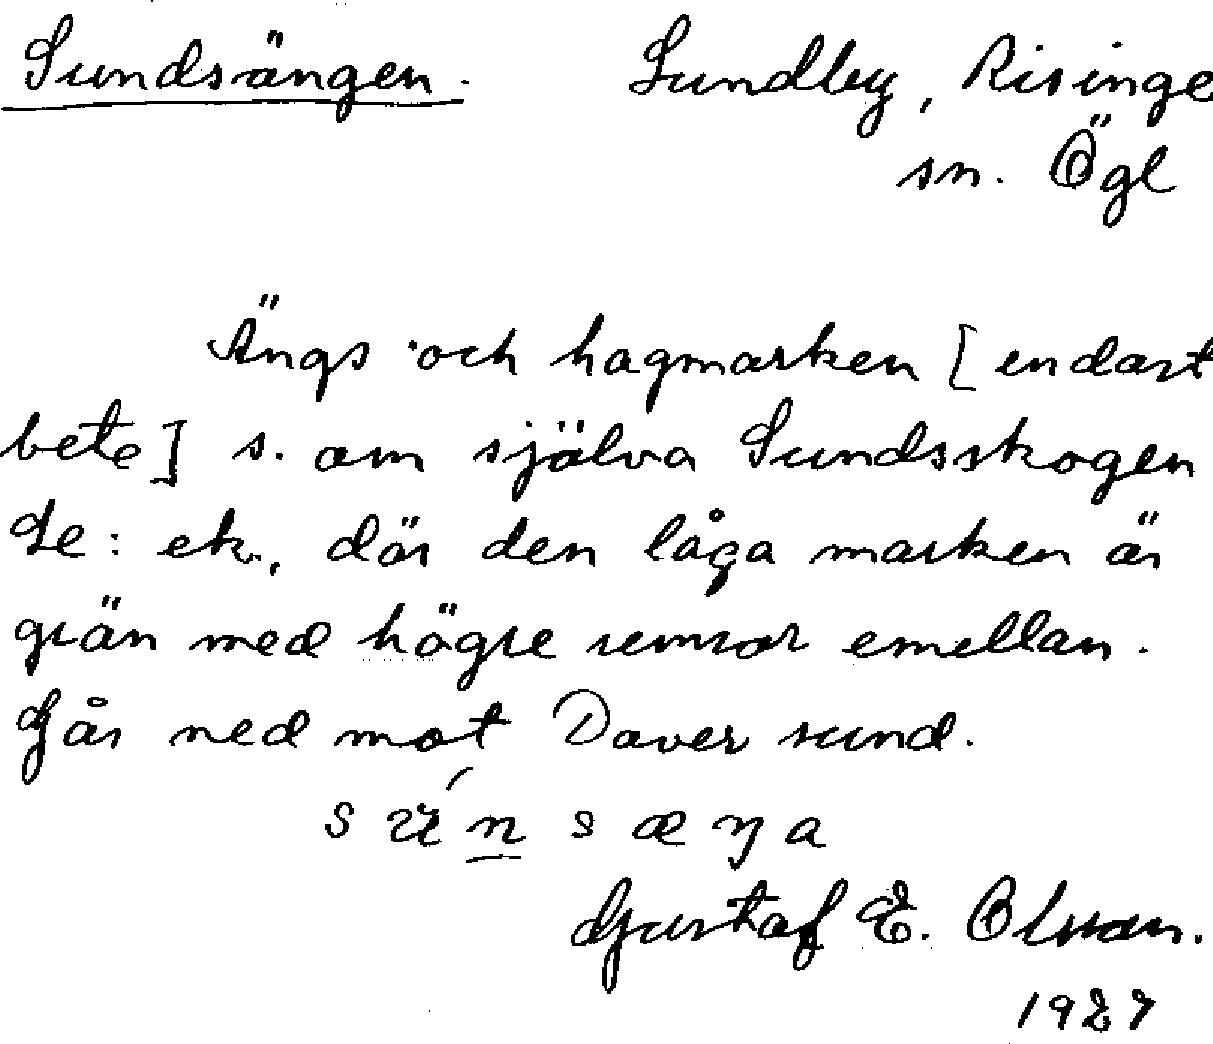 Sundsängen. Lundby, Risinge
sn. Ögl
Ängs och hagmarken [endast
bete] s. om själva Sundsskogen
Le: ek, där den låga marken är
grän med högre remsor emellan.
Går ned mot Daver sund.
Gustaf E. Olsson.
1927